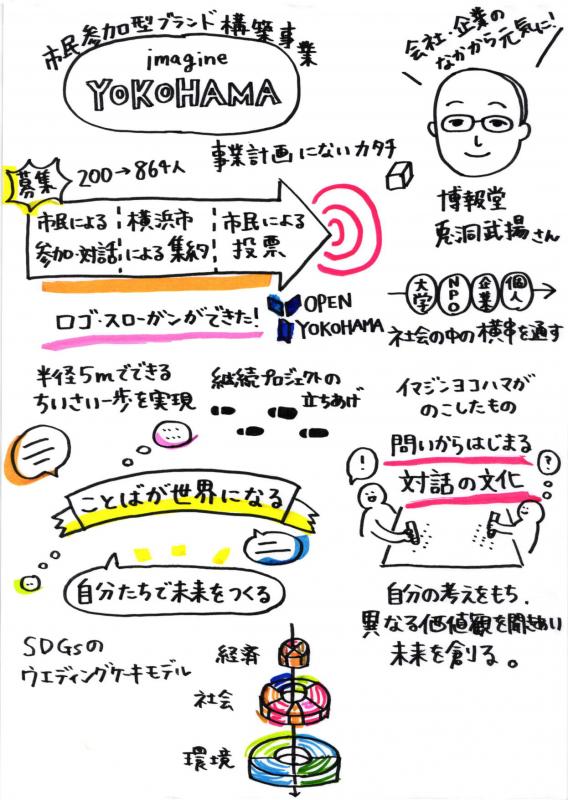 市民参加型ブランド構築事業
imagine
YOKOHAMA
会社・企業の
なかから元気に!
博報堂
兎洞武揚さん
募集
200→864人
事業計画にないカタチ
市民による
参加・対話
横浜市
による集約
市民による
投票
ロゴ・スローガンができた!
OPEN
YOKOHAMA
大学
NPO
企業
個人
社会の中の横串を通す
半径5mでできる
ちいさい一歩を実現
継続プロジェクトの
立ちあげ
イマジンヨコハマが
のこしたもの
問いからはじまる
対話の文化
!
?
ことばが世界になる
自分たちで未来をつくる
自分の考えをもち、
異なる価値観を聞きあい
未来を創る。
SDGsの
ウエディングケーキモデル
経済
社会
環境